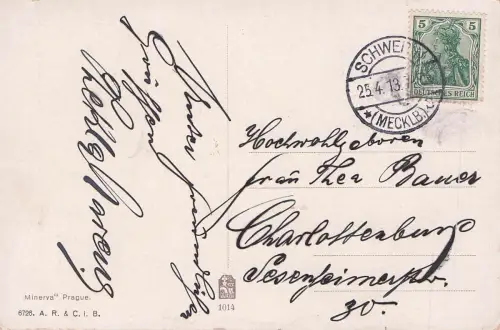 5
DEUTSCHES REICH
SCHWERIN
25.4.13.
(MECKLB)
Hochwohlgeboren
Frau Thea Bauer
Charlottenburg
Sesenheimerstr.
30.
Grüssen
Minerva" Prague.
6726. A. R. & C. I. B.
1014